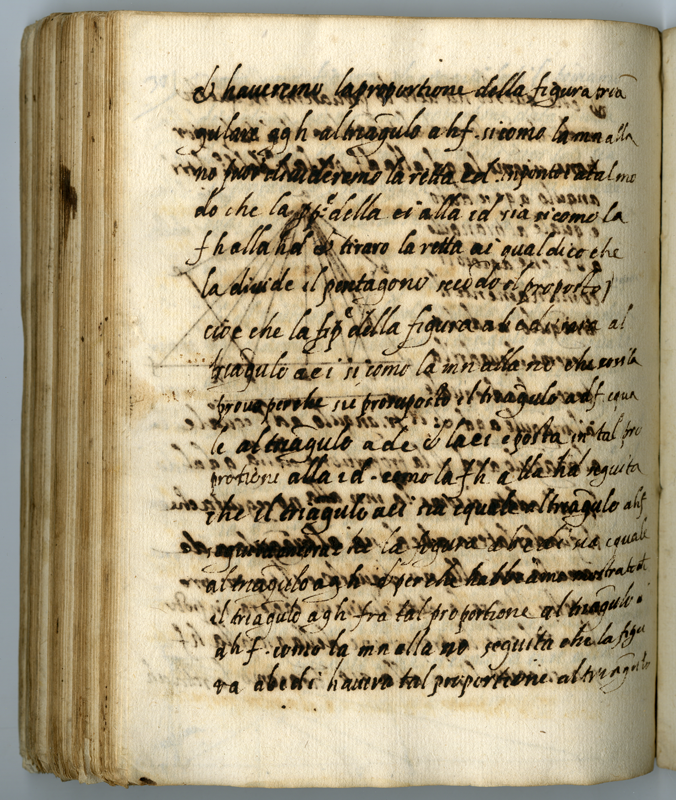 & haveremo la proportione della figura triā
gulare agh al triāgulo ahf. si como la mn alla
no puoi divideremo la retta ed in ponto i tal mo
do che la ꝓp.e della ei alla id sia si como la
fh alla hd & tirero la retta ai qual dico che
la divide il pentagono secōdo il proposto
cioe che la ꝓp.e della figura abcdi sia al
triāgulo aei si como la mn alla no che cosi la
prova perche si e prosuposto il triāgulo adf equa
le al triāgulo ade & la ei e posta in tal pro
protione alla id. como la fh alla hd seguita
che il triāgulo aei sia equale al triāgulo ahf
che la figura abcdi sia equale
al triāgulo agh & perche habbiamo mostrato
il triāgulo agh fra tal proportione al triāgulo
ahf. como la mn alla no seguita che la figu
ra abcdi havera tal proportione al triāgulo